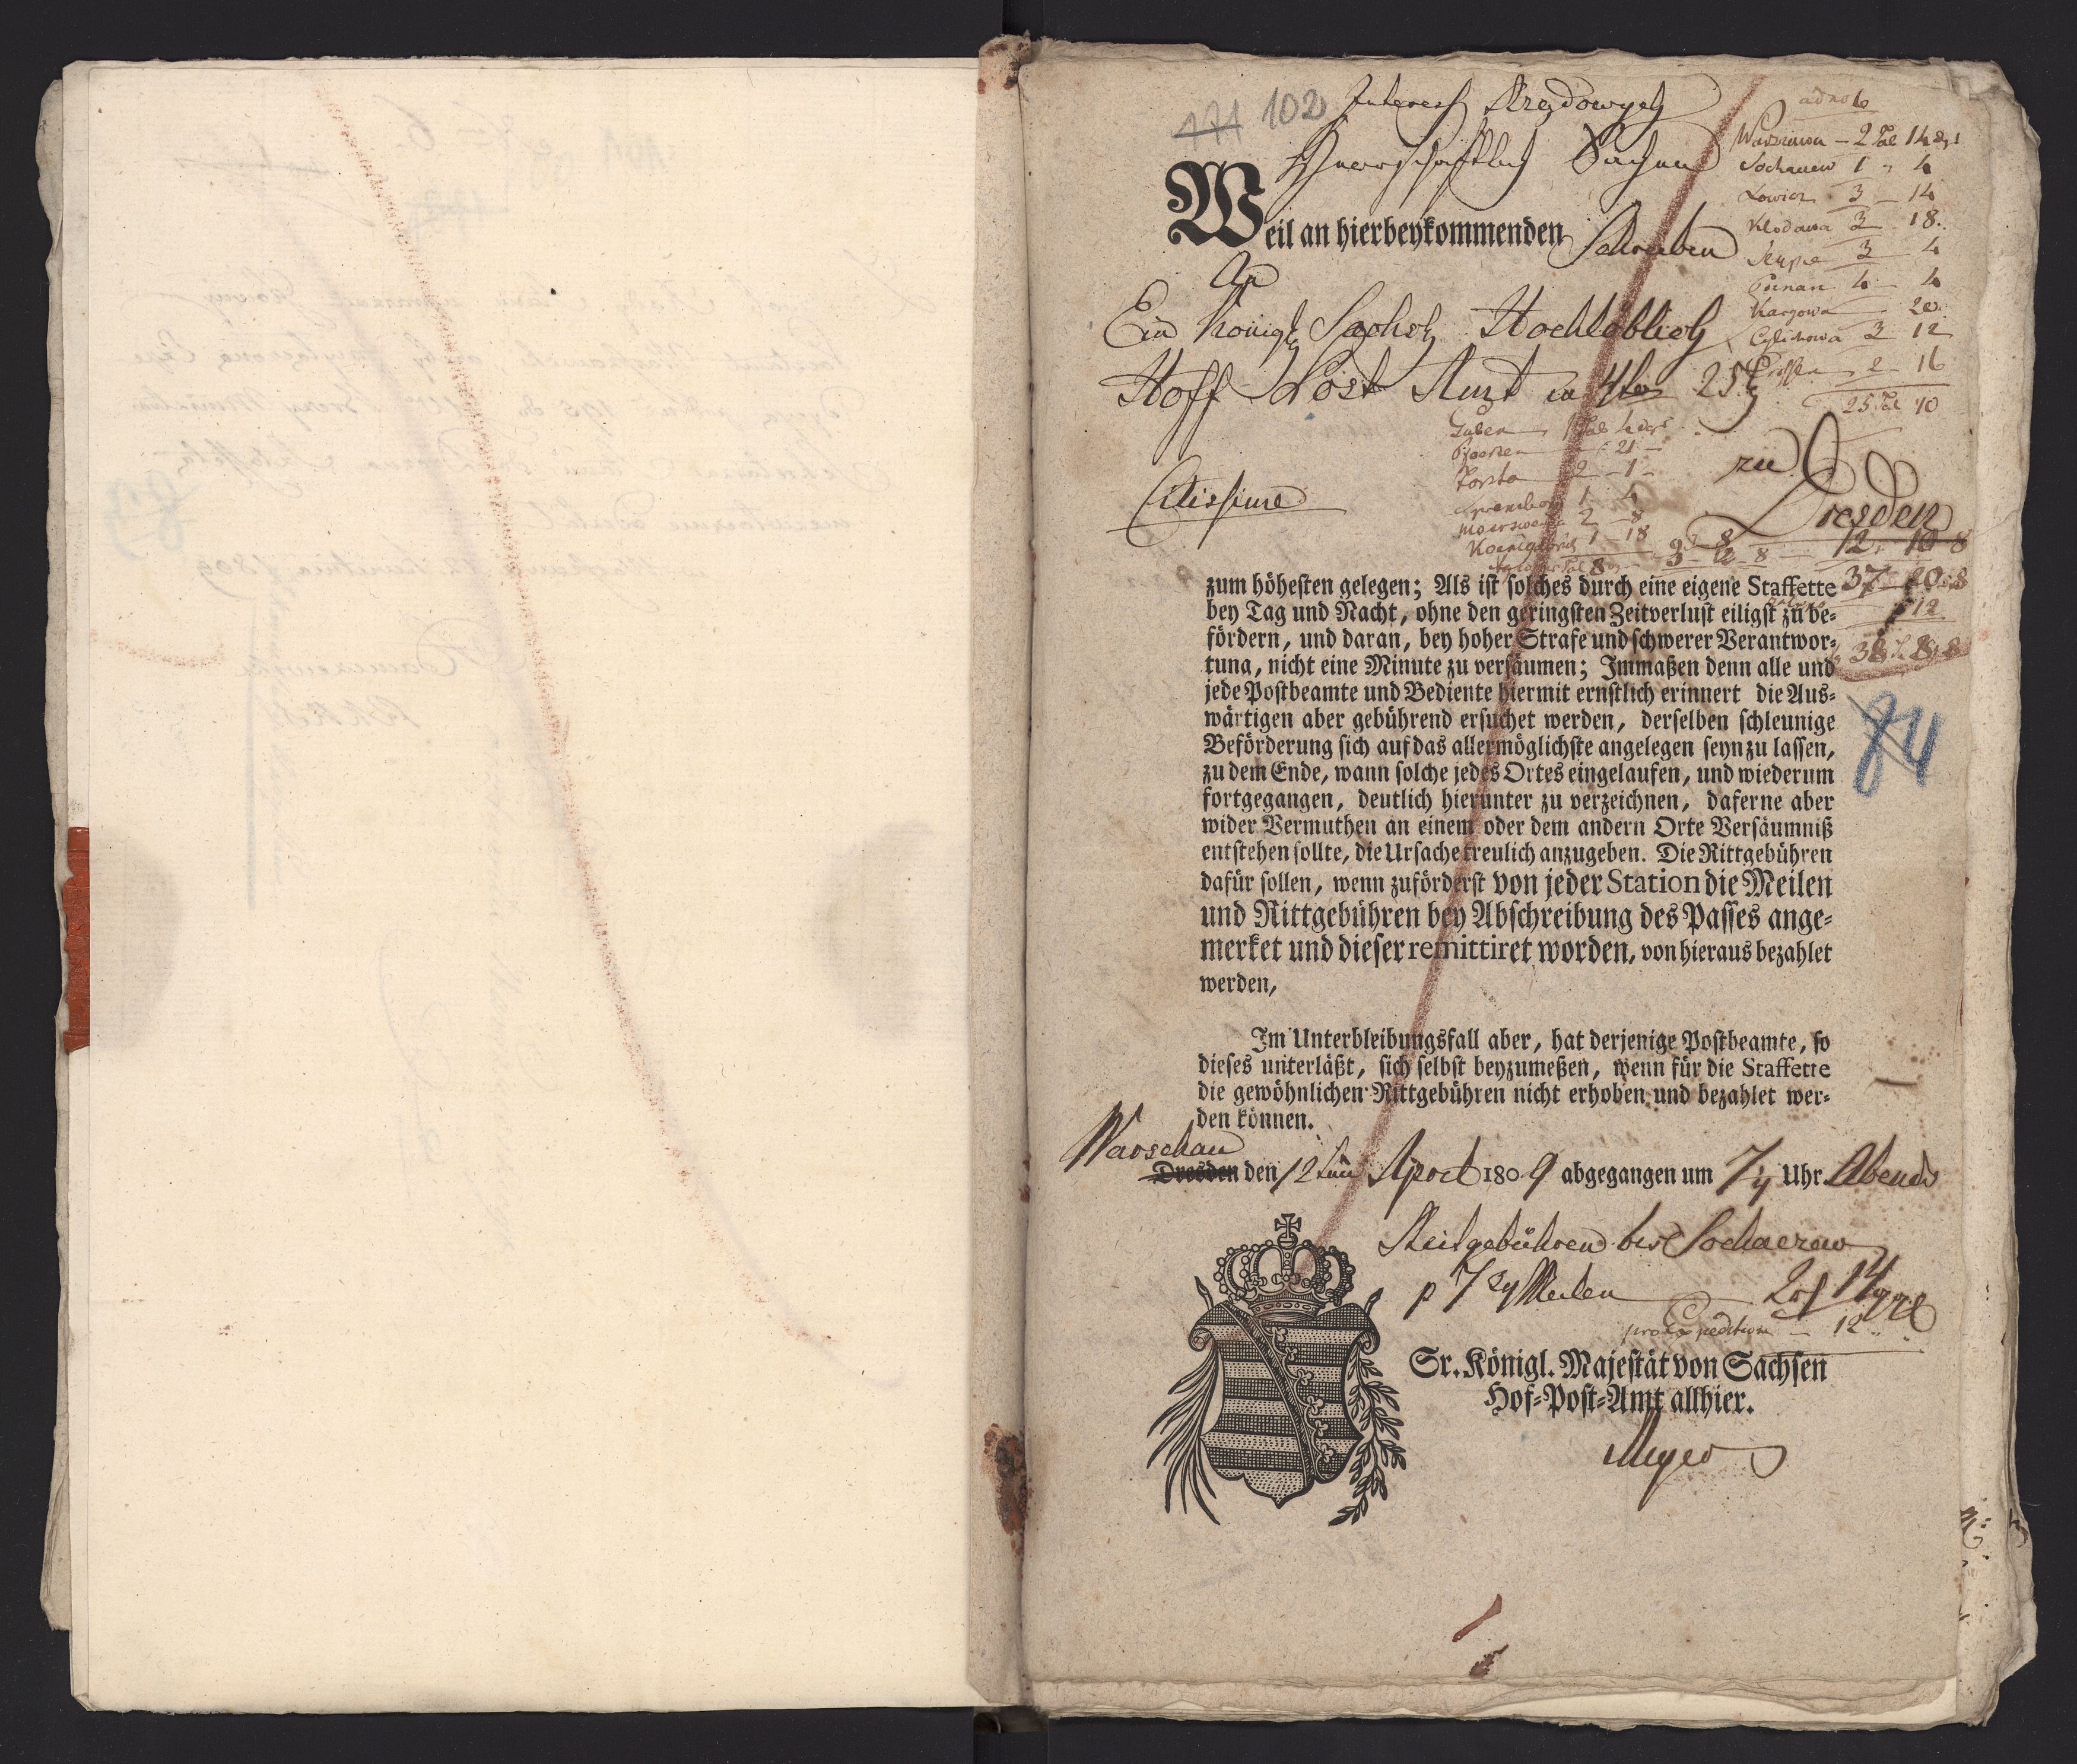 102
Interess Rządowych
Herrschaftlich Sachen
adnota
Warszawa — 2 Tal 14 dgr
Sochacew 1 " 4
Lowicz 3 — 14
Klodawa 3 — 18.
Slupce 3 4
Poznan 4 — 4
Kargowa — 20
Cylichowa 3 12
Crossen 2 16
25 Tal 10
Weil an hierbeykommenden Schreiben
An
Ein Königl Sächs Hochlöblich
Hoff Post Amt
Guben
Pfoerten 21 —
Forsta 2 — 1 —
Spremberg 1 4
2 — 8
Koenigsbrück 1 — 18
zu Dresden
Citissime
12 10 8
37 20 8
12
38 8 8
zum höhesten gelegen; Als ist solches durch eine eigene Staffette
bey Tag und Nacht, ohne den geringsten Zeitverlust eiligst zu be-
fördern, und daran, bey hoher Strafe und schwerer Verantwor-
tung, nicht eine Minute zu versäumen; Immaßen denn alle und
jede Postbeamte und Bediente hiermit ernstlich erinnert die Aus-
wärtigen aber gebührend ersuchet werden, derselben schleunige
Beförderung sich auf das allermöglichste angelegen seyn zu lassen,
zu dem Ende, wann solche jedes Ortes eingelaufen, und wiederum
fortgegangen, deutlich hierunter zu verzeichnen, daferne aber
wider Vermuthen an einem oder dem andern Orte Versäumniß
entstehen sollte, die Ursache treulich anzugeben. Die Rittgebühren
dafür sollen, wenn zuförderst von jeder Station die Meilen
und Rittgebühren bey Abschreibung des Passes ange-
merket und dieser remittiret worden, von hieraus bezahlet
werden,
84
Im Unterbleibungsfall aber, hat derjenige Postbeamte, so
dieses unterläßt, sich selbst beyzumeßen, wenn für die Staffette
die gewöhnlichen Rittgebühren nicht erhoben und bezahlet wer-
den können.
Warschau
Dresden den 12 ten April 1809 abgegangen um 7 Uhr Abends
Reitgebühren bis Sochaczew
p 7 Meilen — 2 rf 14 ggl
pro Expeditione — 12
Sr. Königl. Majestät von Sachsen
Hof-Post-Amt allhier.
Meyer